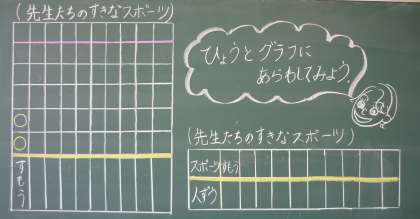 (先生たちのすきなスポーツ)
すもう
ひょうとグラフに
あらわしてみよう。
(先生たちのすきなスポーツ)
スポーツ すもう
人ずう